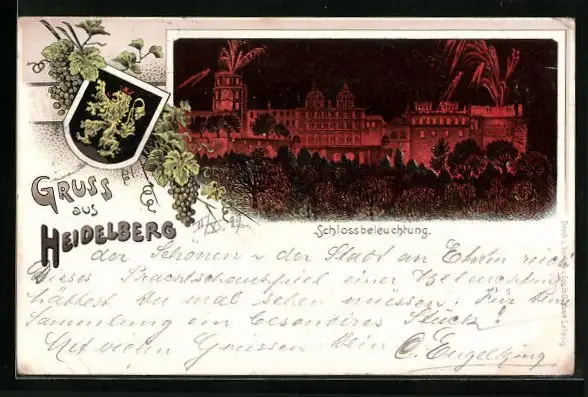 Gruss
aus
Heidelberg
Schlossbeleuchtung.
der Schönen u der Stadt an Ehren reich
Dieses Prachtschauspiel einer Beleuchtung
hättest Du mal sehen müssen! Für Deine
Sammlung ein besonderes Stück!
Mit vielen Grüssen Dein